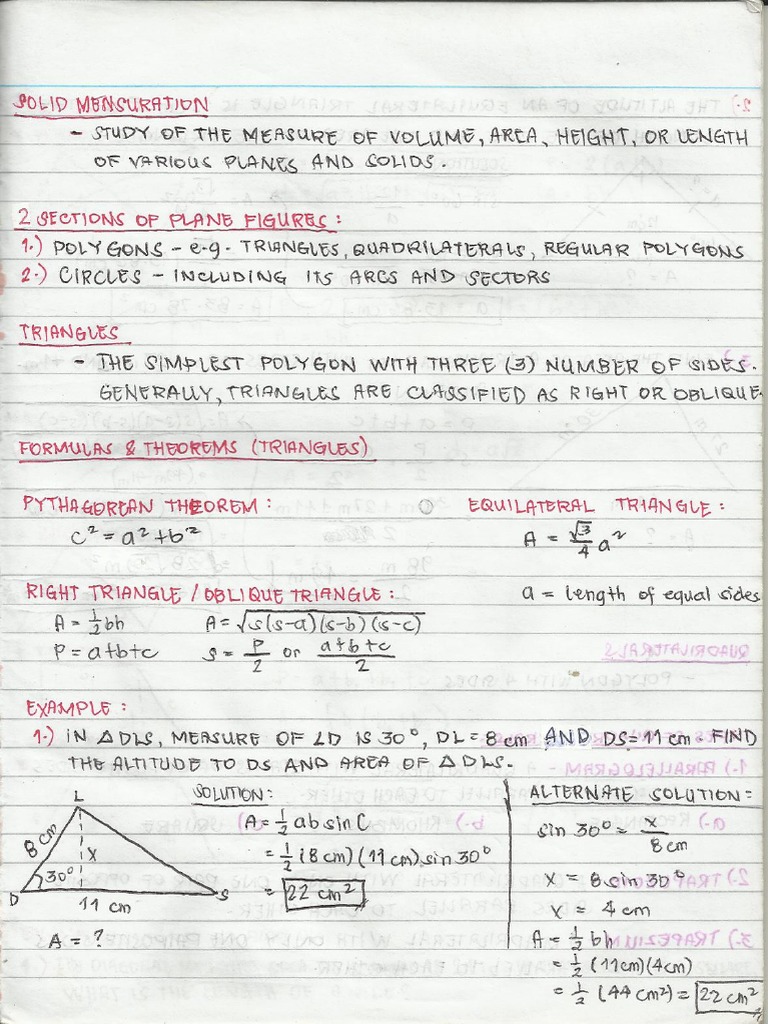 SOLID MENSURATION
- STUDY OF THE MEASURE OF VOLUME, AREA, HEIGHT, OR LENGTH
OF VARIOUS PLANES AND SOLIDS.
2 SECTIONS OF PLANE FIGURES:
1.) POLYGONS - e.g. TRIANGLES, QUADRILATERALS, REGULAR POLYGONS
2.) CIRCLES - INCLUDING ITS ARCS AND SECTORS
TRIANGLES
- THE SIMPLEST POLYGON WITH THREE (3) NUMBER OF SIDES.
GENERALLY, TRIANGLES ARE CLASSIFIED AS RIGHT OR OBLIQUE.
FORMULAS & THEOREMS (TRIANGLES)
PYTHAGOREAN THEOREM:
c² = a² + b²
EQUILATERAL TRIANGLE:
A = √3/4 a²
a = length of equal sides
RIGHT TRIANGLE / OBLIQUE TRIANGLE:
A = 1/2 bh A = √s(s-a)(s-b)(s-c)
P = a+b+c s = P/2 or a+b+c/2
EXAMPLE:
1.) IN △DLS, MEASURE OF ∠D IS 30°, DL = 8 cm AND DS = 11 cm. FIND
THE ALTITUDE TO DS AND AREA OF △DLS.
L
8 cm
x
30°
D
S
11 cm
A = ?
SOLUTION:
A = 1/2 ab sin C
= 1/2 (8 cm)(11 cm) sin 30°
= 22 cm²
ALTERNATE SOLUTION:
sin 30° = x/8 cm
x = 8 sin 30°
x = 4 cm
A = 1/2 bh
= 1/2 (11cm)(4cm)
= 1/2 (44 cm²) = 22 cm²